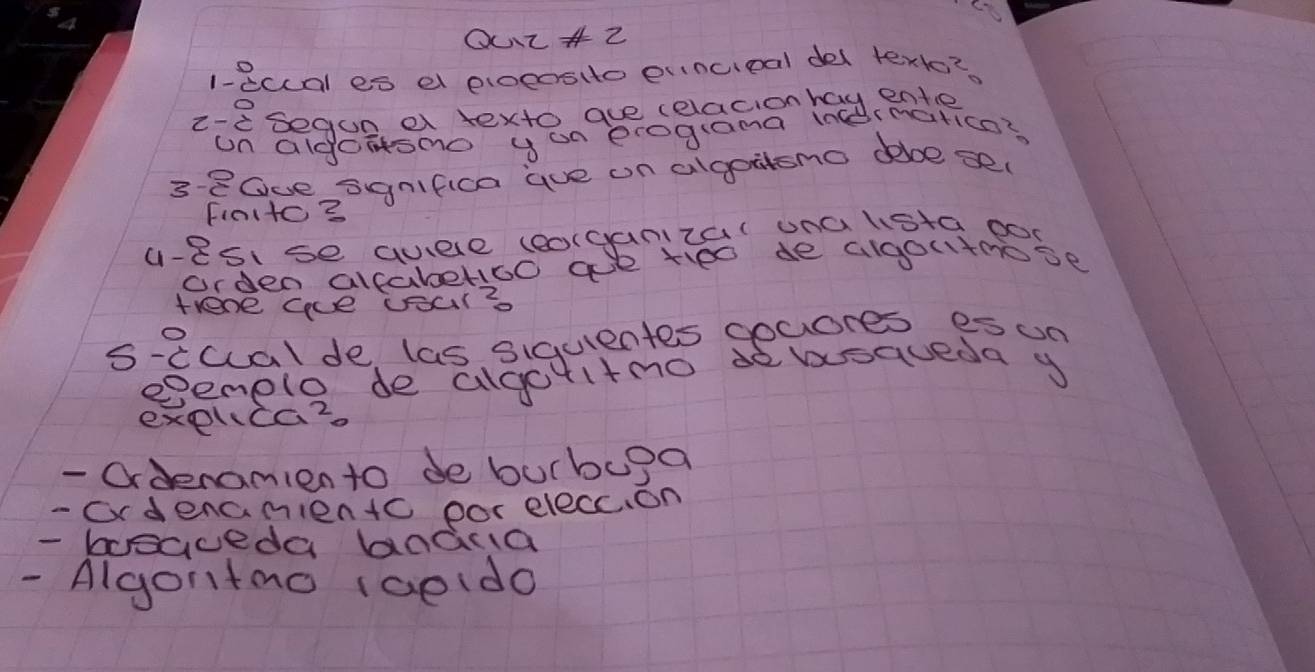 Quiz # 2
1-¿cual es el proposito principal del texto?
2-¿ segun el texto que relacion hay entre
un algoritsmo y un programa informatico?
3-¿Que significa que un algoritsmo debe ser
finito?
4-¿si se quiere reorganizar una lista por
orden alfabetico que tipo de algoritmo se
tiene que usar?
5-¿cual de las siguientes opciones es un
ejemplo de algoritmo de busqueda y
explica?
- Ordenamiento de burbuja
- ordenamiento por eleccion
- busqueda binaria
- Algoritmo rapido